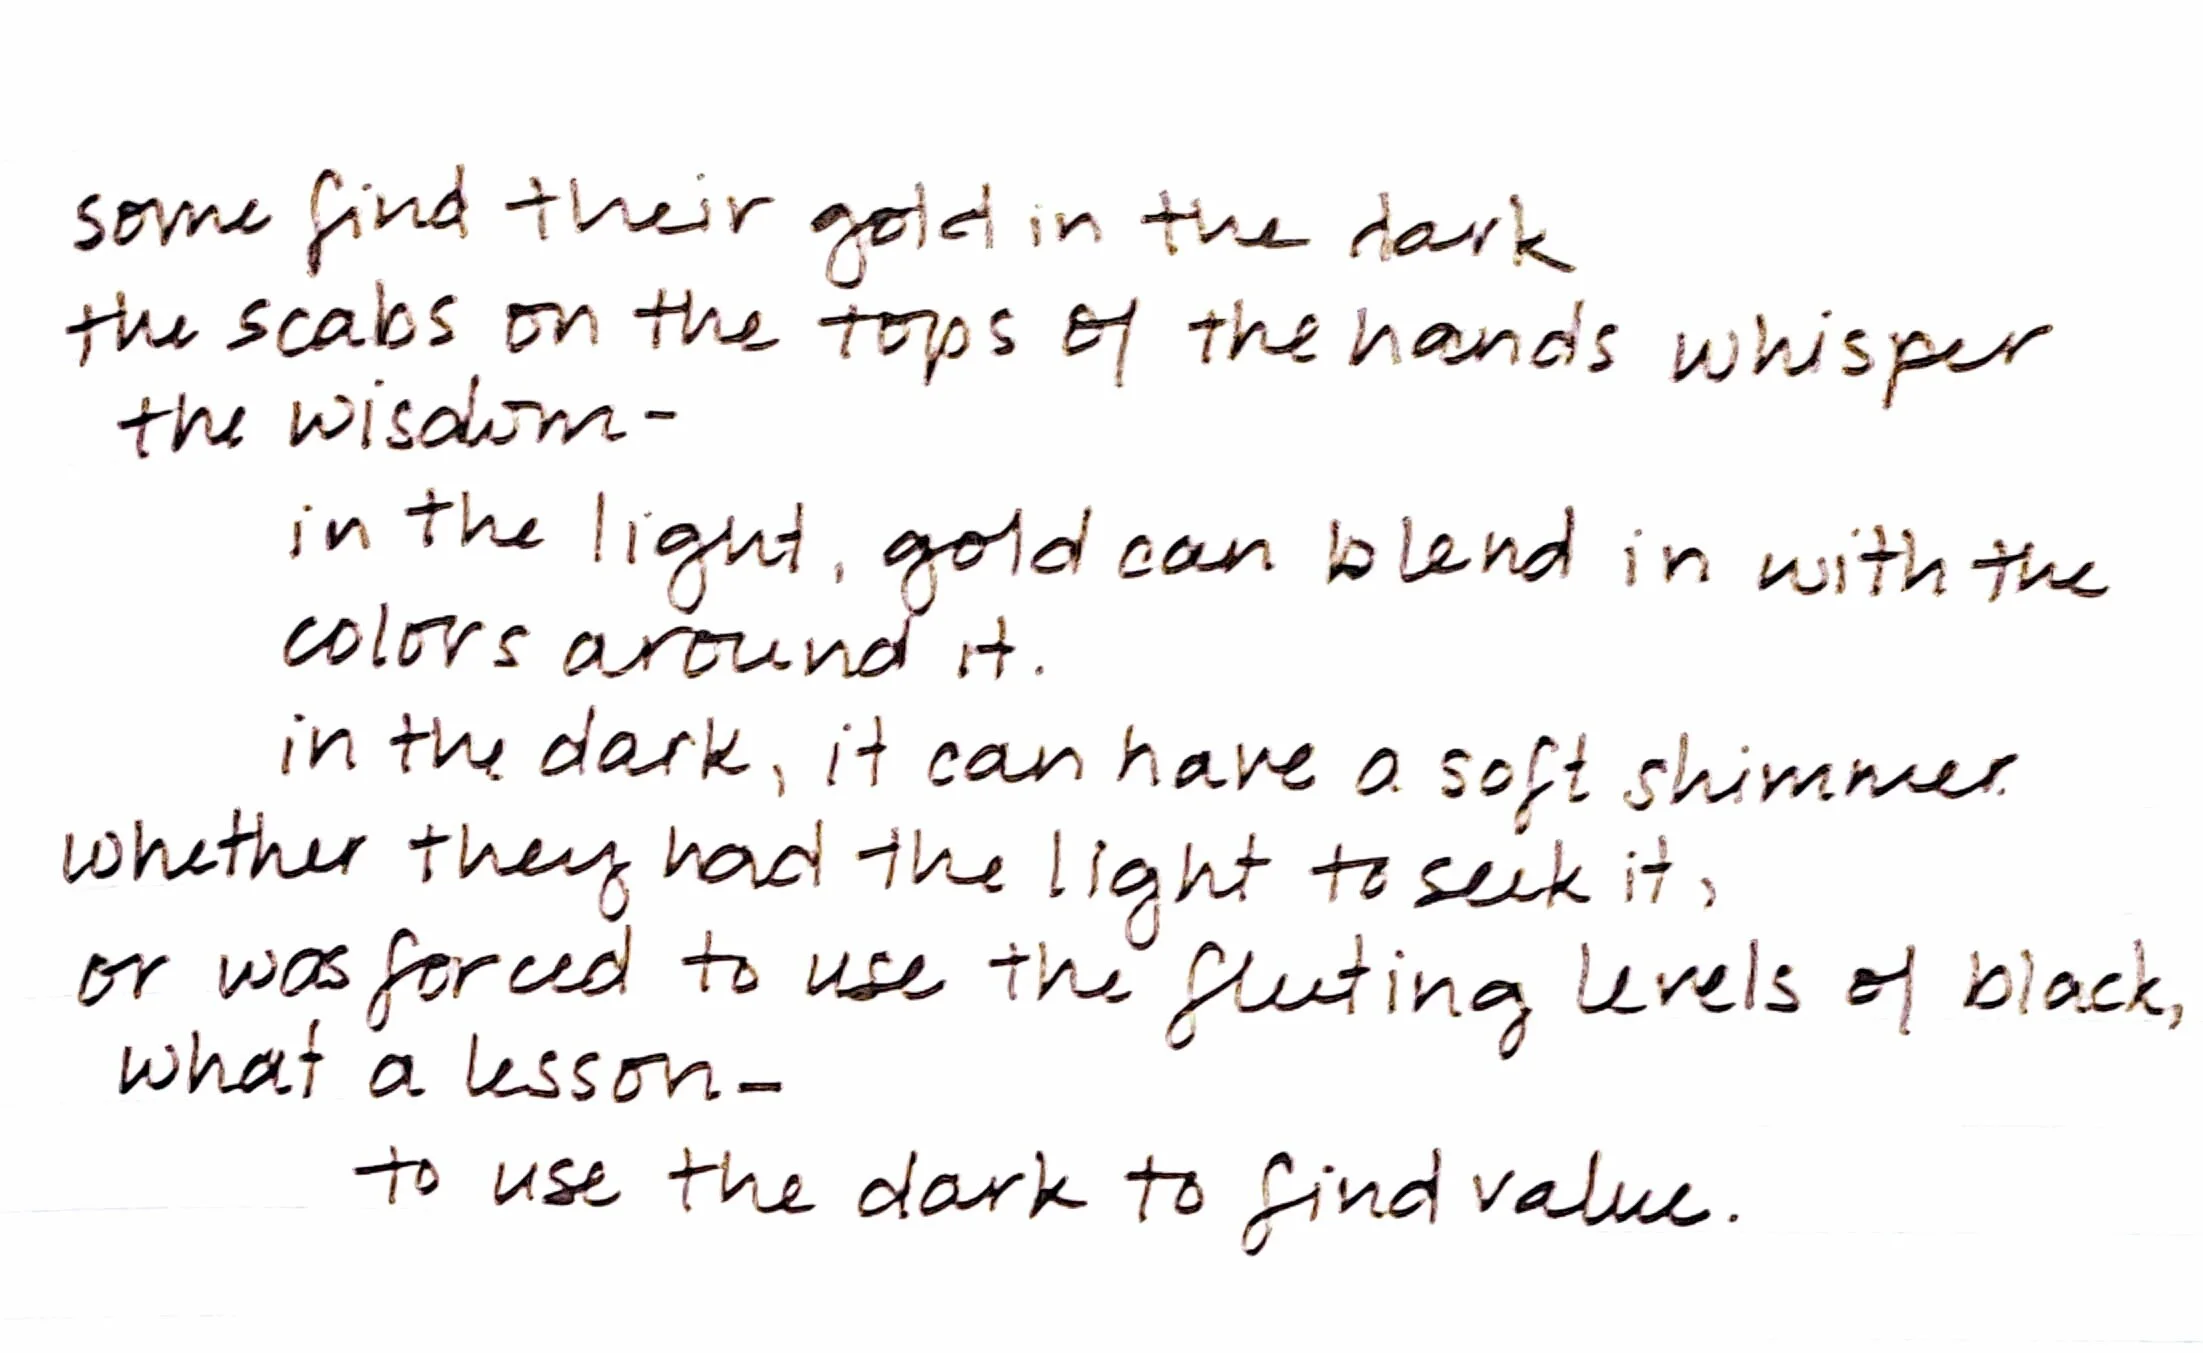 some find their gold in the dark
the scabs on the tops of the hands whisper
the wisdom-
in the light, gold can blend in with the
colors around it.
in the dark, it can have a soft shimmer.
whether they had the light to seek it,
or was forced to use the fleeting levels of black,
what a lesson-
to use the dark to find value.